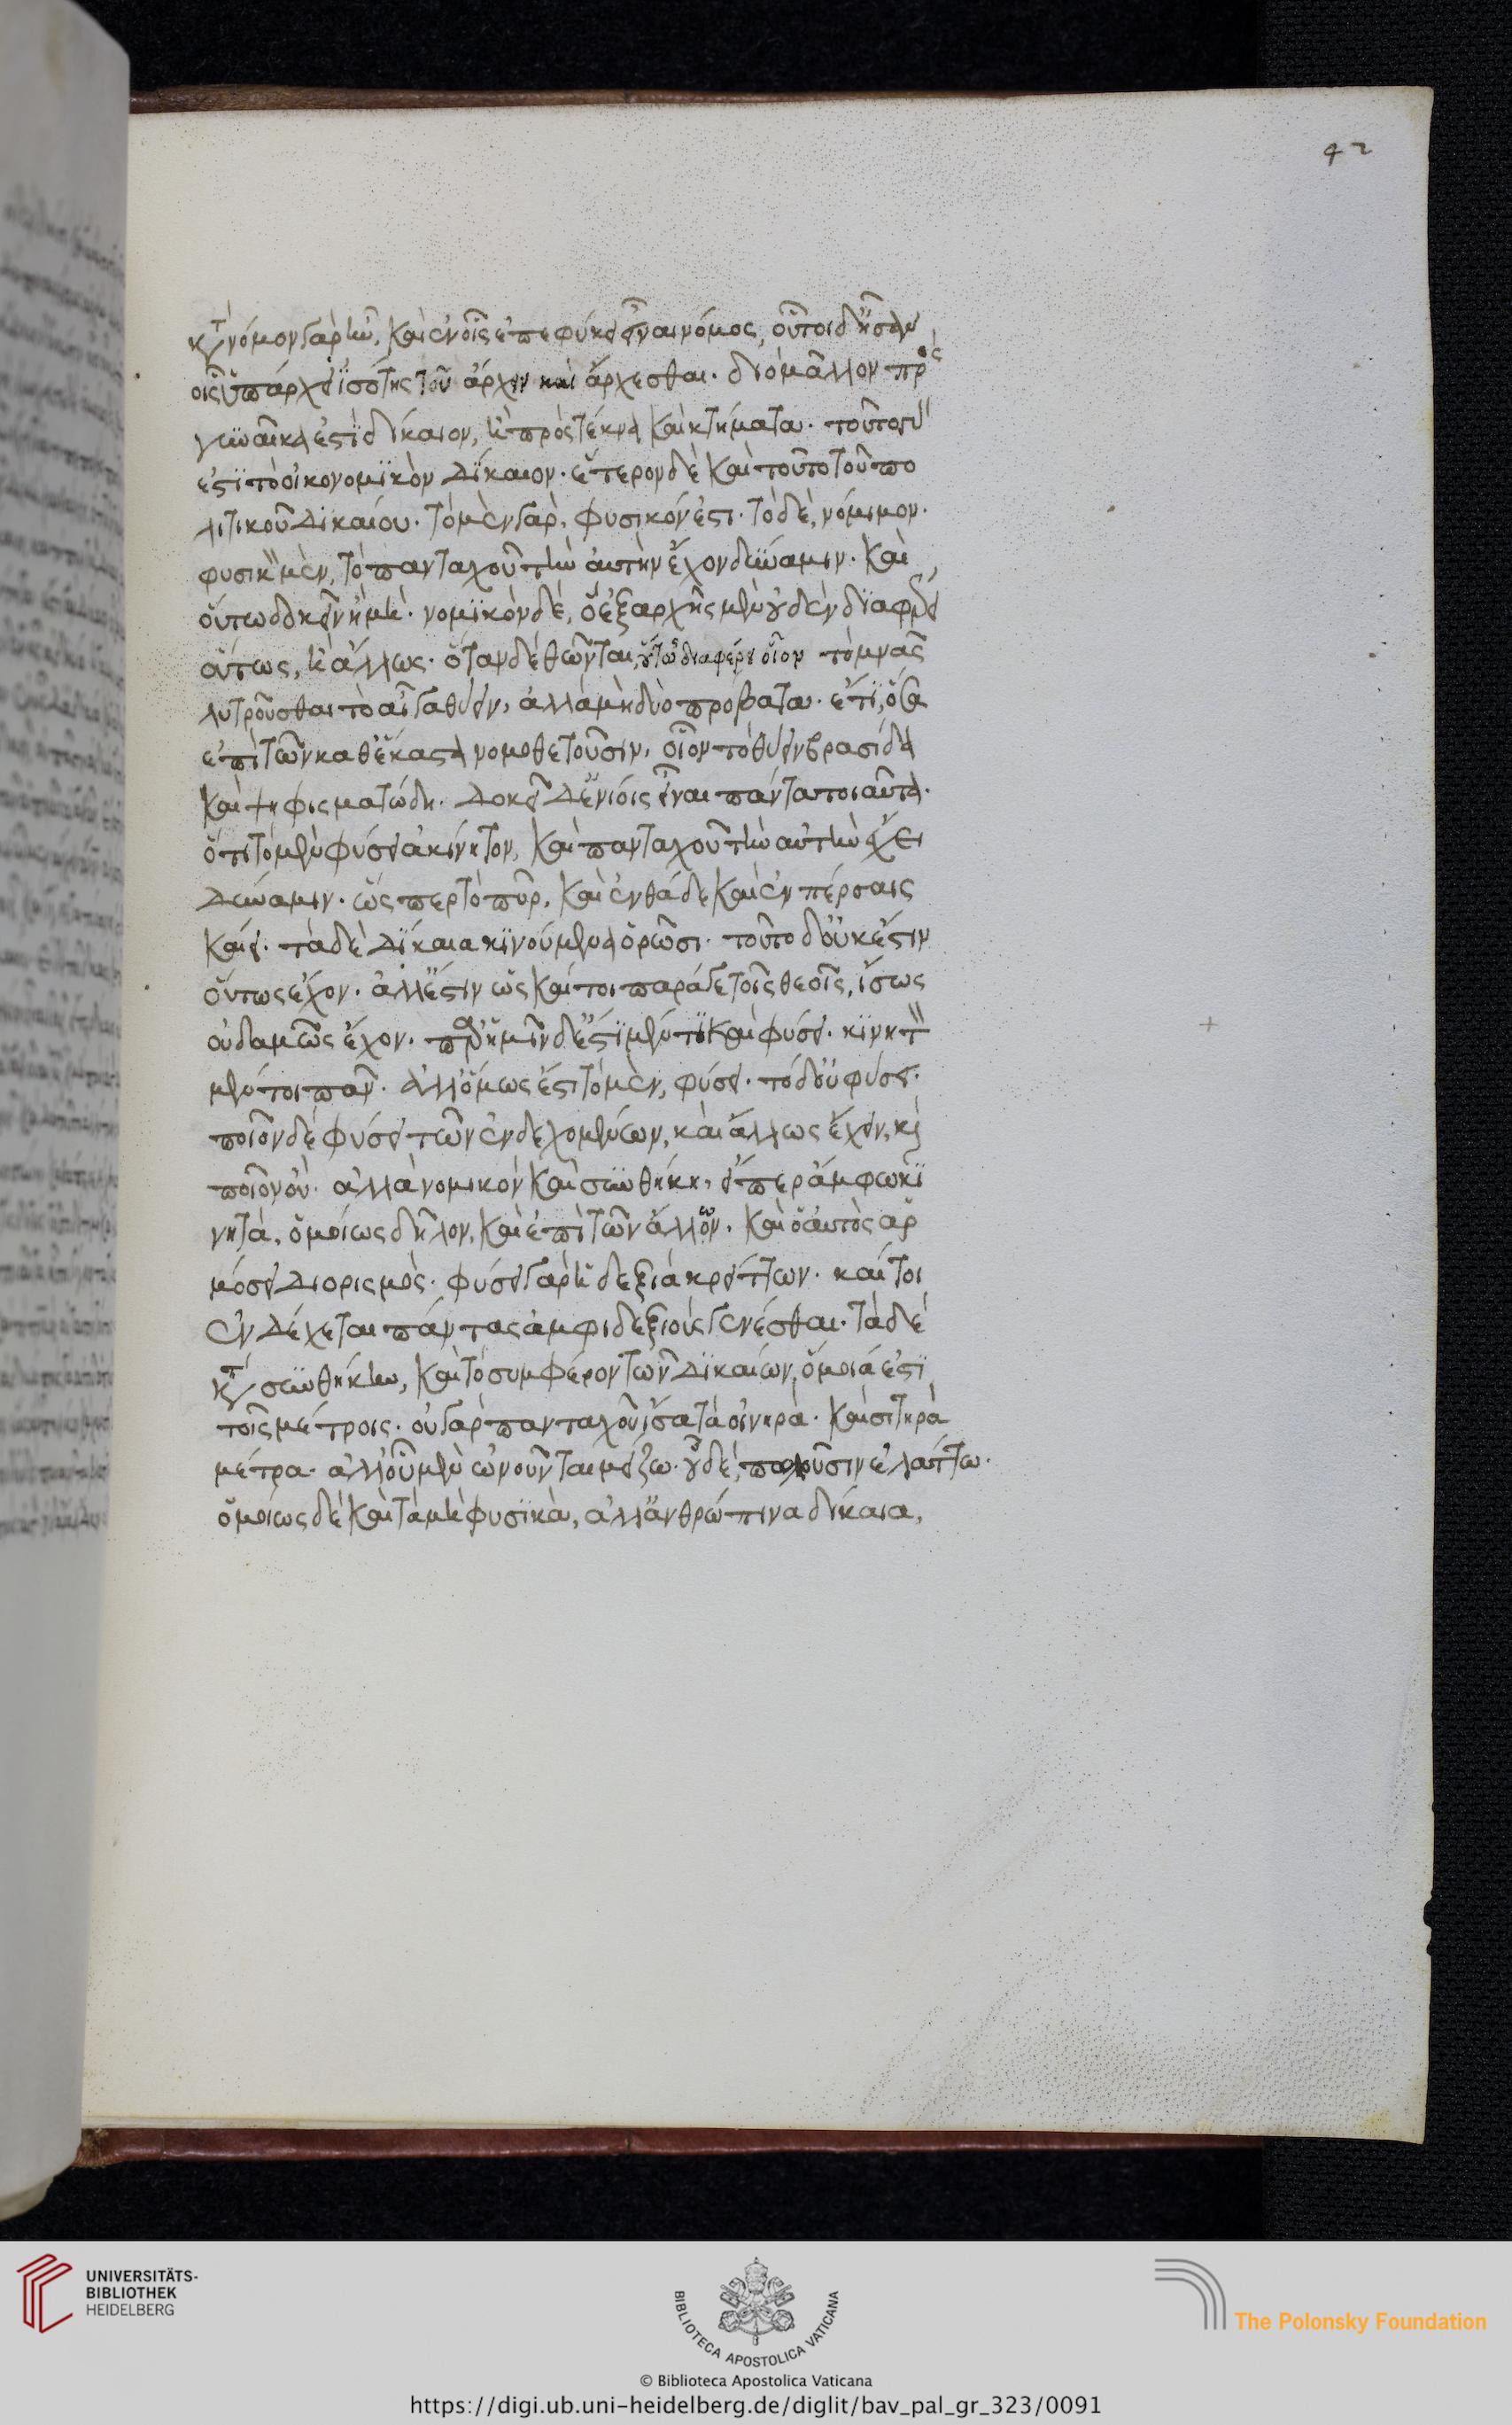 42
κατὰ νόμον γὰρ ἦν, καὶ ἐν οἷς ἐπεφύκει εἶναι νόμος, οὗτοι δ' ἦσαν
οἷς ὑπάρχει ἰσότης τοῦ ἄρχειν καὶ ἄρχεσθαι. διὸ μᾶλλον πρὸς
γυναῖκα ἐστὶ δίκαιον, ἢ πρὸς τέκνα καὶ κτήματα. τοῦτο γὰρ
ἐστὶ τὸ οἰκονομικὸν δίκαιον. ἕτερον δὲ καὶ τοῦτο τοῦ πο
λιτικοῦ δικαίου. τὸ μὲν γὰρ, φυσικόν ἐστι. τὸ δὲ, νόμιμον.
φυσικὸν μὲν, τὸ πανταχοῦ τὴν αὐτὴν ἔχον δύναμιν. καὶ
οὕτω δοκεῖν ἢ μή. νομικὸν δέ, ὃ ἐξαρχῆς μὲν οὐδὲν διαφέρει
οὕτως, ἢ ἄλλως. ὅταν δὲ θῶνται, οὕτω διαφέρει οἷον τὸ μνᾶς
λυτροῦσθαι τὸ αἶγα θύειν, ἀλλὰ μὴ δύο πρόβατα. ἔτι, ὅσα
ἐπὶ τῶν καθ' ἕκαστα νομοθετοῦσιν, οἷον τὸ θύειν βρασίδα
καὶ ψηφισματώδη. δοκεῖ δ' ἐνίοις εἶναι πάντα τοιαῦτα.
ὅτι τὸ μὲν φύσει ἀκίνητον, καὶ πανταχοῦ τὴν αὐτὴν ἔχει
δύναμιν. ὥσπερ τὸ πῦρ, καὶ ἐνθάδε καὶ ἐν πέρσαις
καίει. τὰ δὲ δίκαια κινούμενα ὁρῶσι. τοῦτο δ' οὐκ ἔστιν
οὕτως ἔχον. ἀλλ' ἔστιν ὡς καίτοι παρά γε τοῖς θεοῖς, ἴσως
οὐδαμῶς ἔχον. παρ' ἡμῖν δ' ἐστὶ μέν τι καὶ φύσει. κινητὸν
μέντοι πᾶν. ἀλλ' ὅμως ἐστὶ τὸ μὲν, φύσει. τὸ δ' οὐ φύσει.
ποῖον δὲ φύσει τῶν ἐνδεχομένων, καὶ ἄλλως ἔχειν, καὶ
ποῖον οὐ. ἀλλὰ νομικὸν καὶ συνθήκη, εἴπερ ἄμφω κι
νητά, ὁμοίως δῆλον, καὶ ἐπὶ τῶν ἄλλων. καὶ ὁ αὐτὸς ἁρ
μόσει διορισμός. φύσει γὰρ ἡ δεξιὰ κρείττων. καίτοι
ἐνδέχεται πάντας ἀμφιδεξίους γενέσθαι. τὰ δὲ
κατὰ συνθήκην, καὶ τὸ συμφέρον τῶν δικαίων, ὅμοιά ἐστι
τοῖς μέτροις. οὐ γὰρ πανταχοῦ ἴσα τὰ οἰνηρὰ. καὶ σιτηρὰ
μέτρα. ἀλλ' οὗ μὲν ὠνοῦνται μείζω. οὗ δὲ, πωλοῦσιν ἐλάττω.
ὁμοίως δὲ καὶ τὰ μὴ φυσικὰ, ἀλλ' ἀνθρώπινα δίκαια,
UNIVERSITÄTS-
BIBLIOTHEK
HEIDELBERG
BIBLIOTECA APOSTOLICA VATICANA
The Polonsky Foundation
© Biblioteca Apostolica Vaticana
https://digi.ub.uni-heidelberg.de/diglit/bav_pal_gr_323/0091